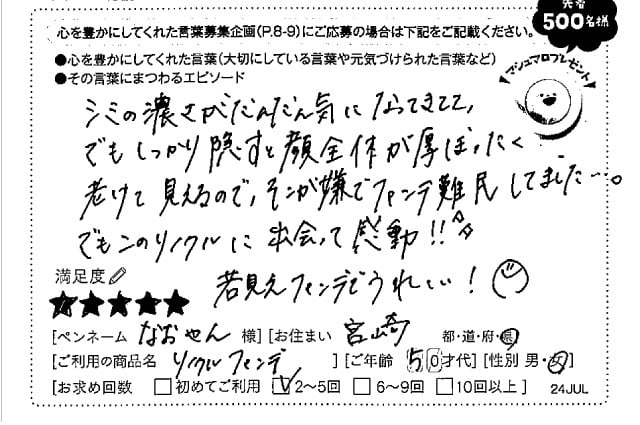 先着
500名様
心を豊かにしてくれた言葉募集企画(P.8-9)にご応募の場合は下記をご記載ください。
●心を豊かにしてくれた言葉(大切にしている言葉や元気づけられた言葉など)
●その言葉にまつわるエピソード
マシュマロプレゼント!
シミの濃さがだんだん気になってきてて、
でもしっかり隠すと顔全体が厚ぼったく
老けて見えるので、そこが嫌でファンデ難民してました…。
でもこのリソウルに出会って感動!!
若見えファンデでうれしい!
満足度
★★★★★
[ペンネーム なおやん 様] [お住まい 宮崎 都・道・府・県]
[ご利用の商品名 リソウルファンデ ] [ご年齢 50才代] [性別 男・女]
[お求め回数 □初めてご利用 ☑2〜5回 □6〜9回 □10回以上] 24JUL